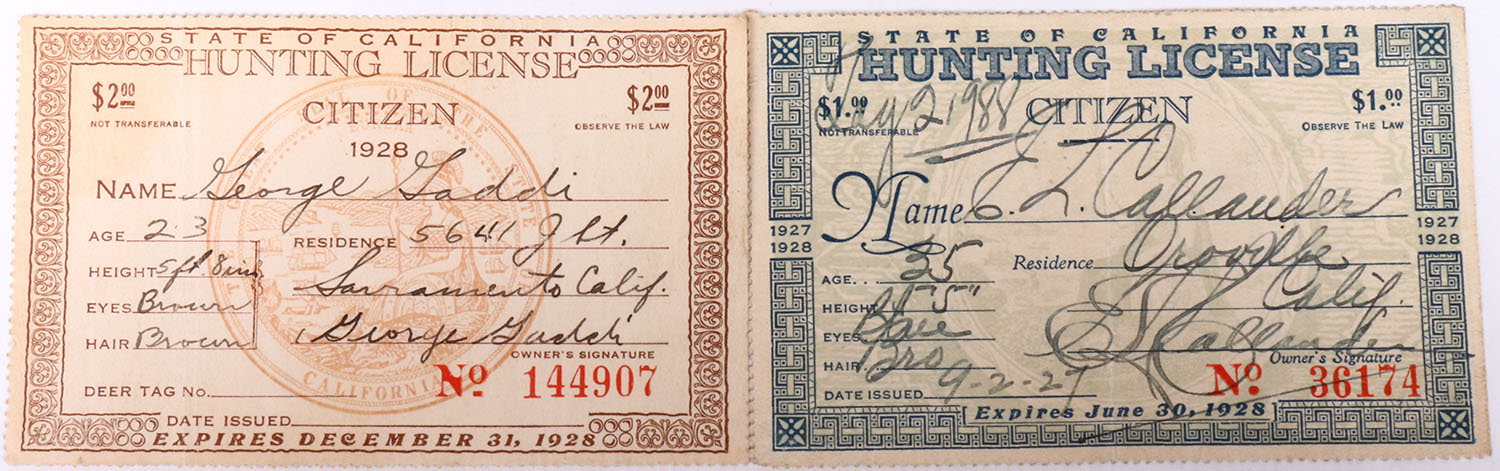 STATE OF CALIFORNIA
HUNTING LICENSE
$2.00 CITIZEN $2.00
NOT TRANSFERABLE OBSERVE THE LAW
1928
NAME George Gaddi
AGE 23 RESIDENCE 5641 J St.
HEIGHT 5 ft. 8 in Sacramento Calif.
EYES Brown
HAIR Brown George Gaddi
OWNER'S SIGNATURE
DEER TAG NO. No. 144907
DATE ISSUED
EXPIRES DECEMBER 31, 1928
CALIFORNIA
STATE OF CALIFORNIA
HUNTING LICENSE
$1.00 CITIZEN $1.00
NOT TRANSFERABLE OBSERVE THE LAW
2, 1988
Name L. Callander
1927 1928 1927 1928
AGE 35 Residence Oroville
HEIGHT 5" Calif.
EYES
HAIR Bro Callander
Owner's Signature
DATE ISSUED 9-2-27 No. 36174
Expires June 30, 1928